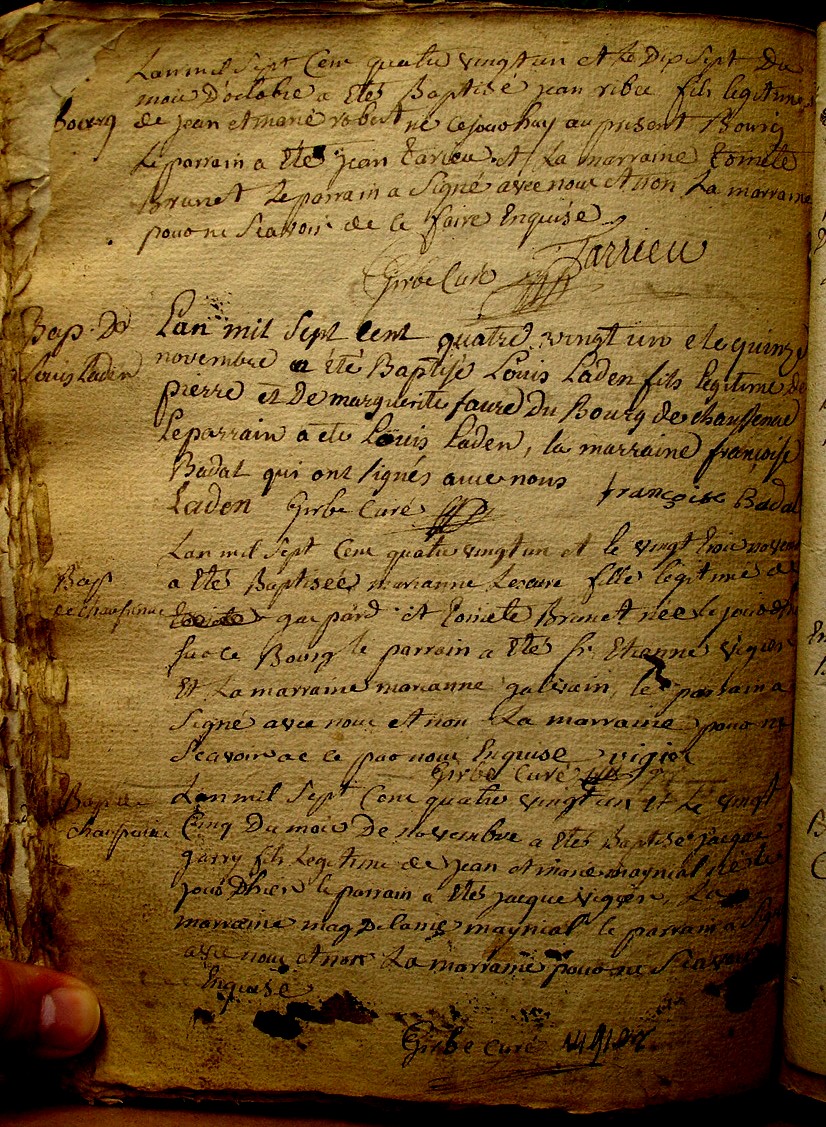 Lan mil Sept Cent quatre vingt un et le Dix Sept du
mois D'octobre a etés Baptisé jean ribes fils legitime
Bourg de jean et marie robert né ce jourdhuy au present Bourg
Le parrain a etés jean tarrieu et La marraine toinete
Brunet Le parrain a Signé avec nous et non La marraine
pour ne Scavoir de ce faire Enquise
Tarrieu
Girbe Curé
Bap. De Lan mil Sept cent quatre vingt un et le quinze
Louis Laden novembre a été Baptisé Louis Laden fils legitime de
pierre et de marguerite faure du Bourg de chaussenac
Le parrain a été Louis Laden, la marraine françoise
Badal qui ont signés avec nous françoise Badal
Laden Girbe Curé
Lan mil Sept Cent quatre vingt un et le vingt trois novem
Bap a etés Baptisée marianne Lescure fille legitime de
de chaussenac gaspard et toinete Brunet née le jour
sur ce Bourg le parrain a etés Sr. Etienne vigier
et La marraine marianne galvain, le parrain a
Signé avec nous et non La marraine pour ne
Scavoir de ce par nous Enquise vigier
Girbe Curé
Bap de Lan mil Sept Cent quatre vingt un et Le vingt
chaussenac Cinq Du mois De novembre a etés Baptisé jacques
garry fils Legitime de jean et marie maynial né le
jour Dhier le parrain a etés jacque vigier, La
marraine magdelaine maynial le parrain a Signé
avec nous et non La marraine pour ne Scavoir
Enquise
Girbe curé vigier